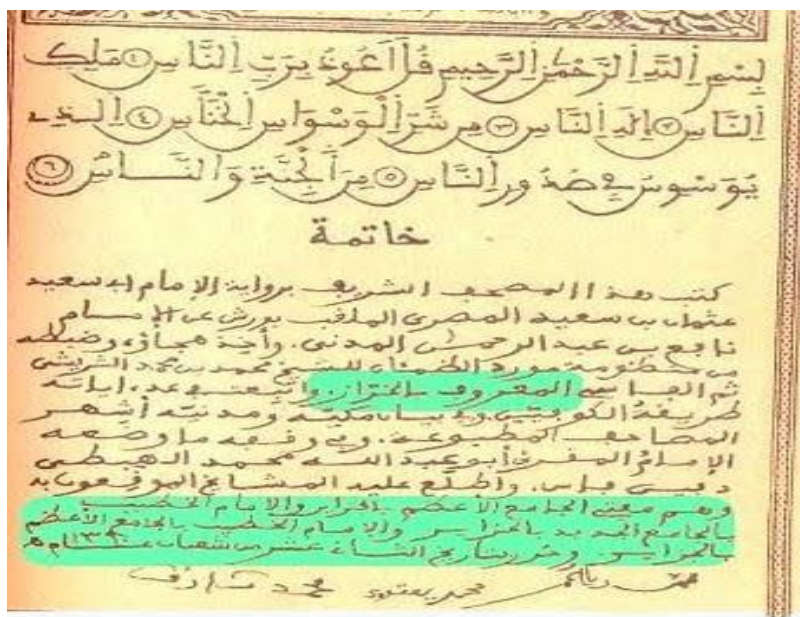 بِسْمِ اِللَّهِ اِلرَّحْمَٰنِ اِلرَّحِيمِ قُلَ اَعُوذُ بِرَبِّ اِلنَّاسِ ① مَلِكِ
اِلنَّاسِ ② إِلَهِ اِلنَّاسِ ③ مِن شَرِّ اِلْوَسْوَاسِ اِلْخَنَّاسِ ④ اِلذِے
يُوَسْوِسُ فِے صُدُورِ اِلنَّاسِ ⑤ مِنَ اَلْجِنَّةِ وَالنَّاسِ ⑥
خاتمة
كتب هذا المصحف الشريف برواية الإمام أبي سعيد
عثمان بن سعيد المصري الملقب بورش عن الإمام
نافع بن عبد الرحمن المدني. وأخذ هجاؤه وضبطه
من منظومة مورد الظمئان للشيخ محمد بن محمد الشريشي
ثم الفاسي المعروف بالخراز. واتبعت في عد، اياته
طريقة الكوفيين. وفي بيان مكيته ومدنيته أشهر
المصاحف المطبوعة. وفي وقفه ما وضعه
الإمام المقرئ أبو عبد الله محمد الهبطي
دفين فاس. واطلع عليه المشايخ الموقعون به
وهم مفتي الجامع الأعظم بالجزاير والإمام الخطيب
بالجامع الجديد بالجزاير والإمام الخطيب بالجامع الأعظم
بالجزاير وحرر بتاريخ الثاني عشر من شعبان عام
محمد